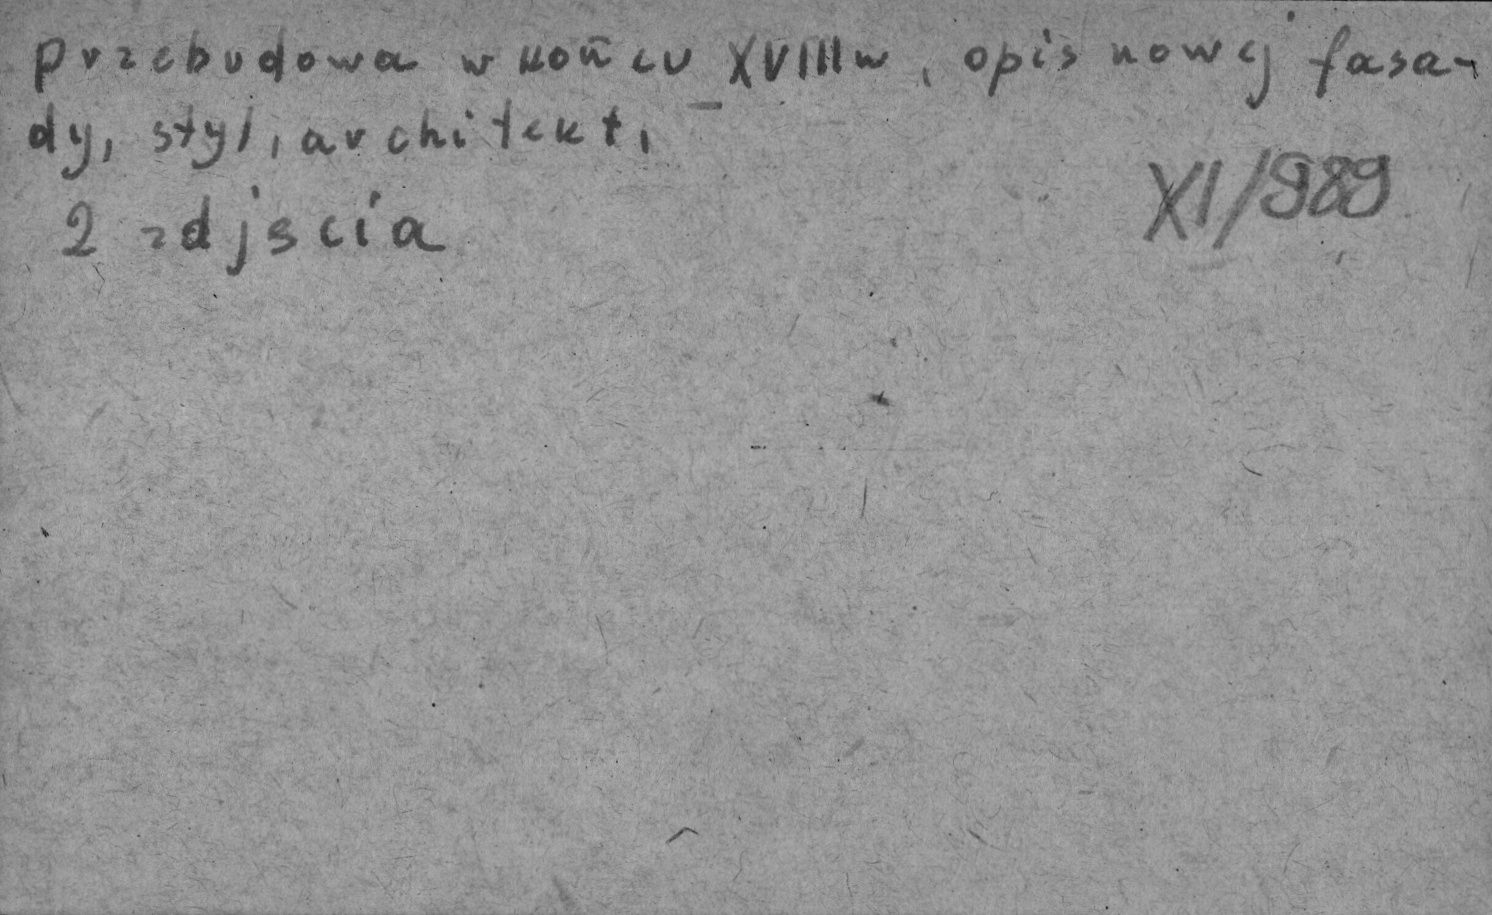 przebudowa w końcu XVIII w, opis nowej fasa-
dy, styl, architekt,
XI/989
2 zdjścia